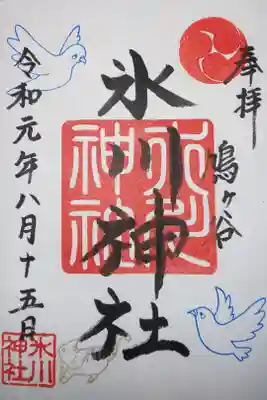 奉拝
鳩ヶ谷
氷川神社
氷川
神社
令和元年八月十五日
氷川
神社